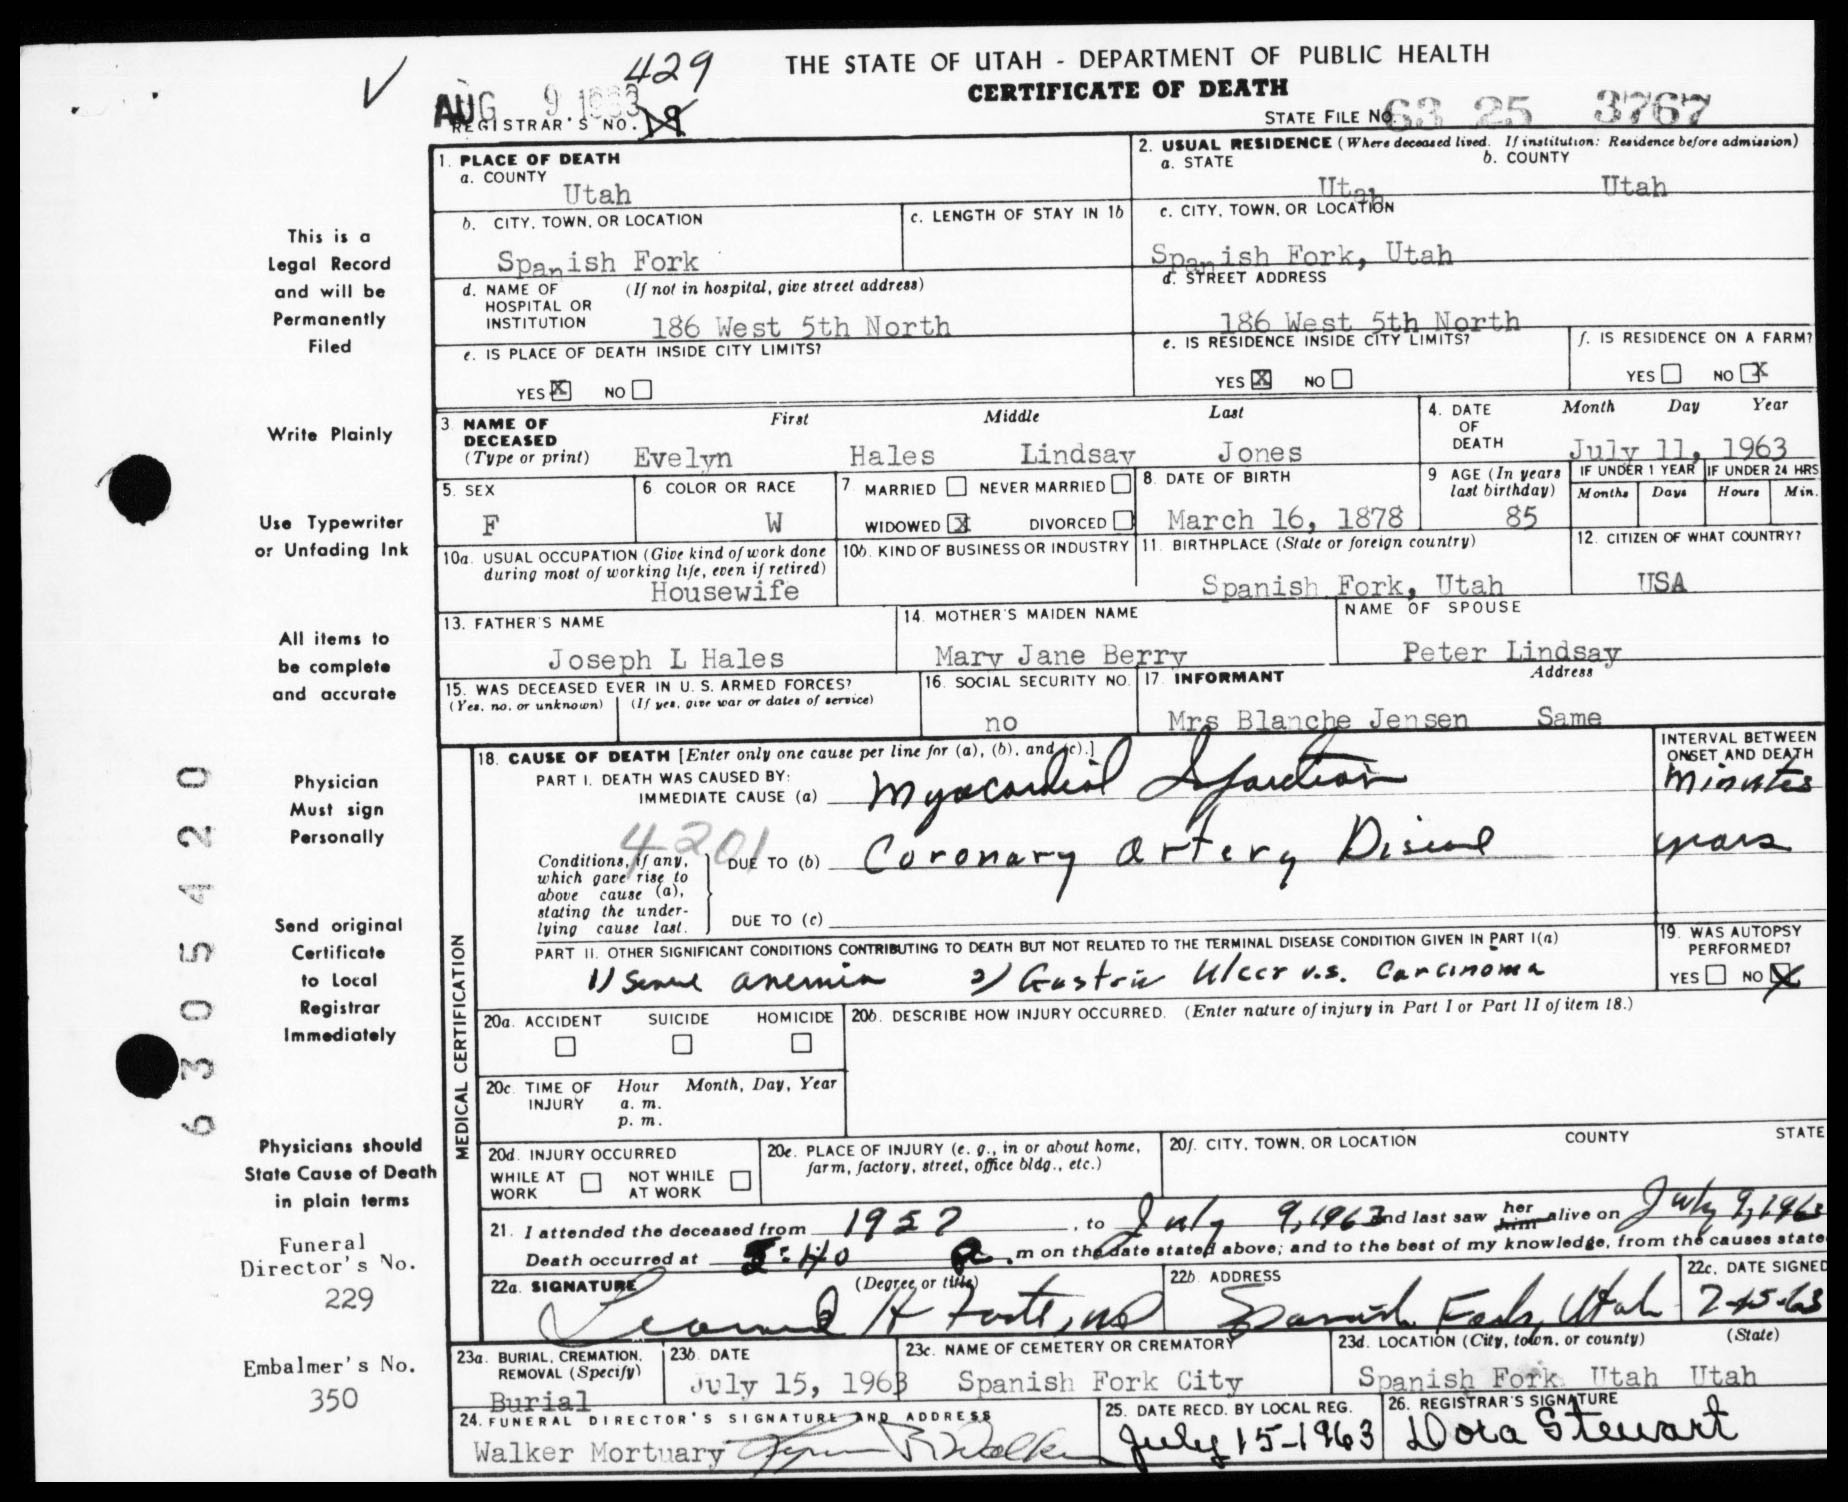 THE STATE OF UTAH - DEPARTMENT OF PUBLIC HEALTH
CERTIFICATE OF DEATH
429
AUG 9 1963
REGISTRAR'S NO.
STATE FILE NO. 63 25 3767
1. PLACE OF DEATH
a. COUNTY
Utah
2. USUAL RESIDENCE (Where deceased lived. If institution: Residence before admission)
a. STATE b. COUNTY
Utah Utah
b. CITY, TOWN, OR LOCATION
Spanish Fork
c. LENGTH OF STAY IN 1b
c. CITY, TOWN, OR LOCATION
Spanish Fork, Utah
d. NAME OF HOSPITAL OR INSTITUTION (If not in hospital, give street address)
186 West 5th North
d. STREET ADDRESS
186 West 5th North
e. IS PLACE OF DEATH INSIDE CITY LIMITS?
YES X NO
e. IS RESIDENCE INSIDE CITY LIMITS?
YES X NO
f. IS RESIDENCE ON A FARM?
YES NO X
3 NAME OF DECEASED (Type or print)
First Middle Last
Evelyn Hales Lindsay Jones
4. DATE OF DEATH
Month Day Year
July 11, 1963
5. SEX
F
6 COLOR OR RACE
W
7. MARRIED NEVER MARRIED
WIDOWED X DIVORCED
8. DATE OF BIRTH
March 16, 1878
9 AGE (In years last birthday)
85
IF UNDER 1 YEAR
Months Days
IF UNDER 24 HRS
Hours Min.
10a. USUAL OCCUPATION (Give kind of work done during most of working life, even if retired)
Housewife
10b. KIND OF BUSINESS OR INDUSTRY
11. BIRTHPLACE (State or foreign country)
Spanish Fork, Utah
12. CITIZEN OF WHAT COUNTRY?
USA
13. FATHER'S NAME
Joseph L Hales
14. MOTHER'S MAIDEN NAME
Mary Jane Berry
NAME OF SPOUSE
Peter Lindsay
15. WAS DECEASED EVER IN U. S. ARMED FORCES?
(Yes, no, or unknown) (If yes, give war or dates of service)
16. SOCIAL SECURITY NO.
no
17. INFORMANT Address
Mrs Blanche Jensen Same
MEDICAL CERTIFICATION
18. CAUSE OF DEATH [Enter only one cause per line for (a), (b), and (c).]
PART I. DEATH WAS CAUSED BY:
IMMEDIATE CAUSE (a) Myocardial Infarction
INTERVAL BETWEEN ONSET AND DEATH
Minutes
4201
Conditions, if any, which gave rise to above cause (a), stating the underlying cause last.
DUE TO (b) Coronary Artery Disease
years
DUE TO (c)
PART II. OTHER SIGNIFICANT CONDITIONS CONTRIBUTING TO DEATH BUT NOT RELATED TO THE TERMINAL DISEASE CONDITION GIVEN IN PART I(a)
1) anemia 2) Gastric Ulcer v.s. Carcinoma
19. WAS AUTOPSY PERFORMED?
YES NO X
20a. ACCIDENT SUICIDE HOMICIDE
20b. DESCRIBE HOW INJURY OCCURRED. (Enter nature of injury in Part I or Part II of item 18.)
20c. TIME OF INJURY Hour Month, Day, Year
a. m.
p. m.
20d. INJURY OCCURRED
WHILE AT WORK NOT WHILE AT WORK
20e. PLACE OF INJURY (e. g., in or about home, farm, factory, street, office bldg., etc.)
20f. CITY, TOWN, OR LOCATION COUNTY STATE
21. I attended the deceased from 1957, to July 9, 1963 and last saw her him alive on July 9, 1963
Death occurred at 5:40 m on the date stated above; and to the best of my knowledge, from the causes state
22a. SIGNATURE (Degree or title)
22b. ADDRESS
Spanish Fork, Utah
22c. DATE SIGNED
7-15-63
23a. BURIAL, CREMATION, REMOVAL (Specify)
Burial
23b. DATE
July 15, 1963
23c. NAME OF CEMETERY OR CREMATORY
Spanish Fork City
23d. LOCATION (City, town, or county) (State)
Spanish Fork Utah Utah
24. FUNERAL DIRECTOR'S SIGNATURE AND ADDRESS
Walker Mortuary
25. DATE RECD. BY LOCAL REG.
July 15-1963
26. REGISTRAR'S SIGNATURE
Dora Stewart
This is a
Legal Record
and will be
Permanently
Filed
Write Plainly
Use Typewriter
or Unfading Ink
All items to
be complete
and accurate
Physician
Must sign
Personally
Send original
Certificate
to Local
Registrar
Immediately
Physicians should
State Cause of Death
in plain terms
Funeral
Director's No.
229
Embalmer's No.
350
6305420